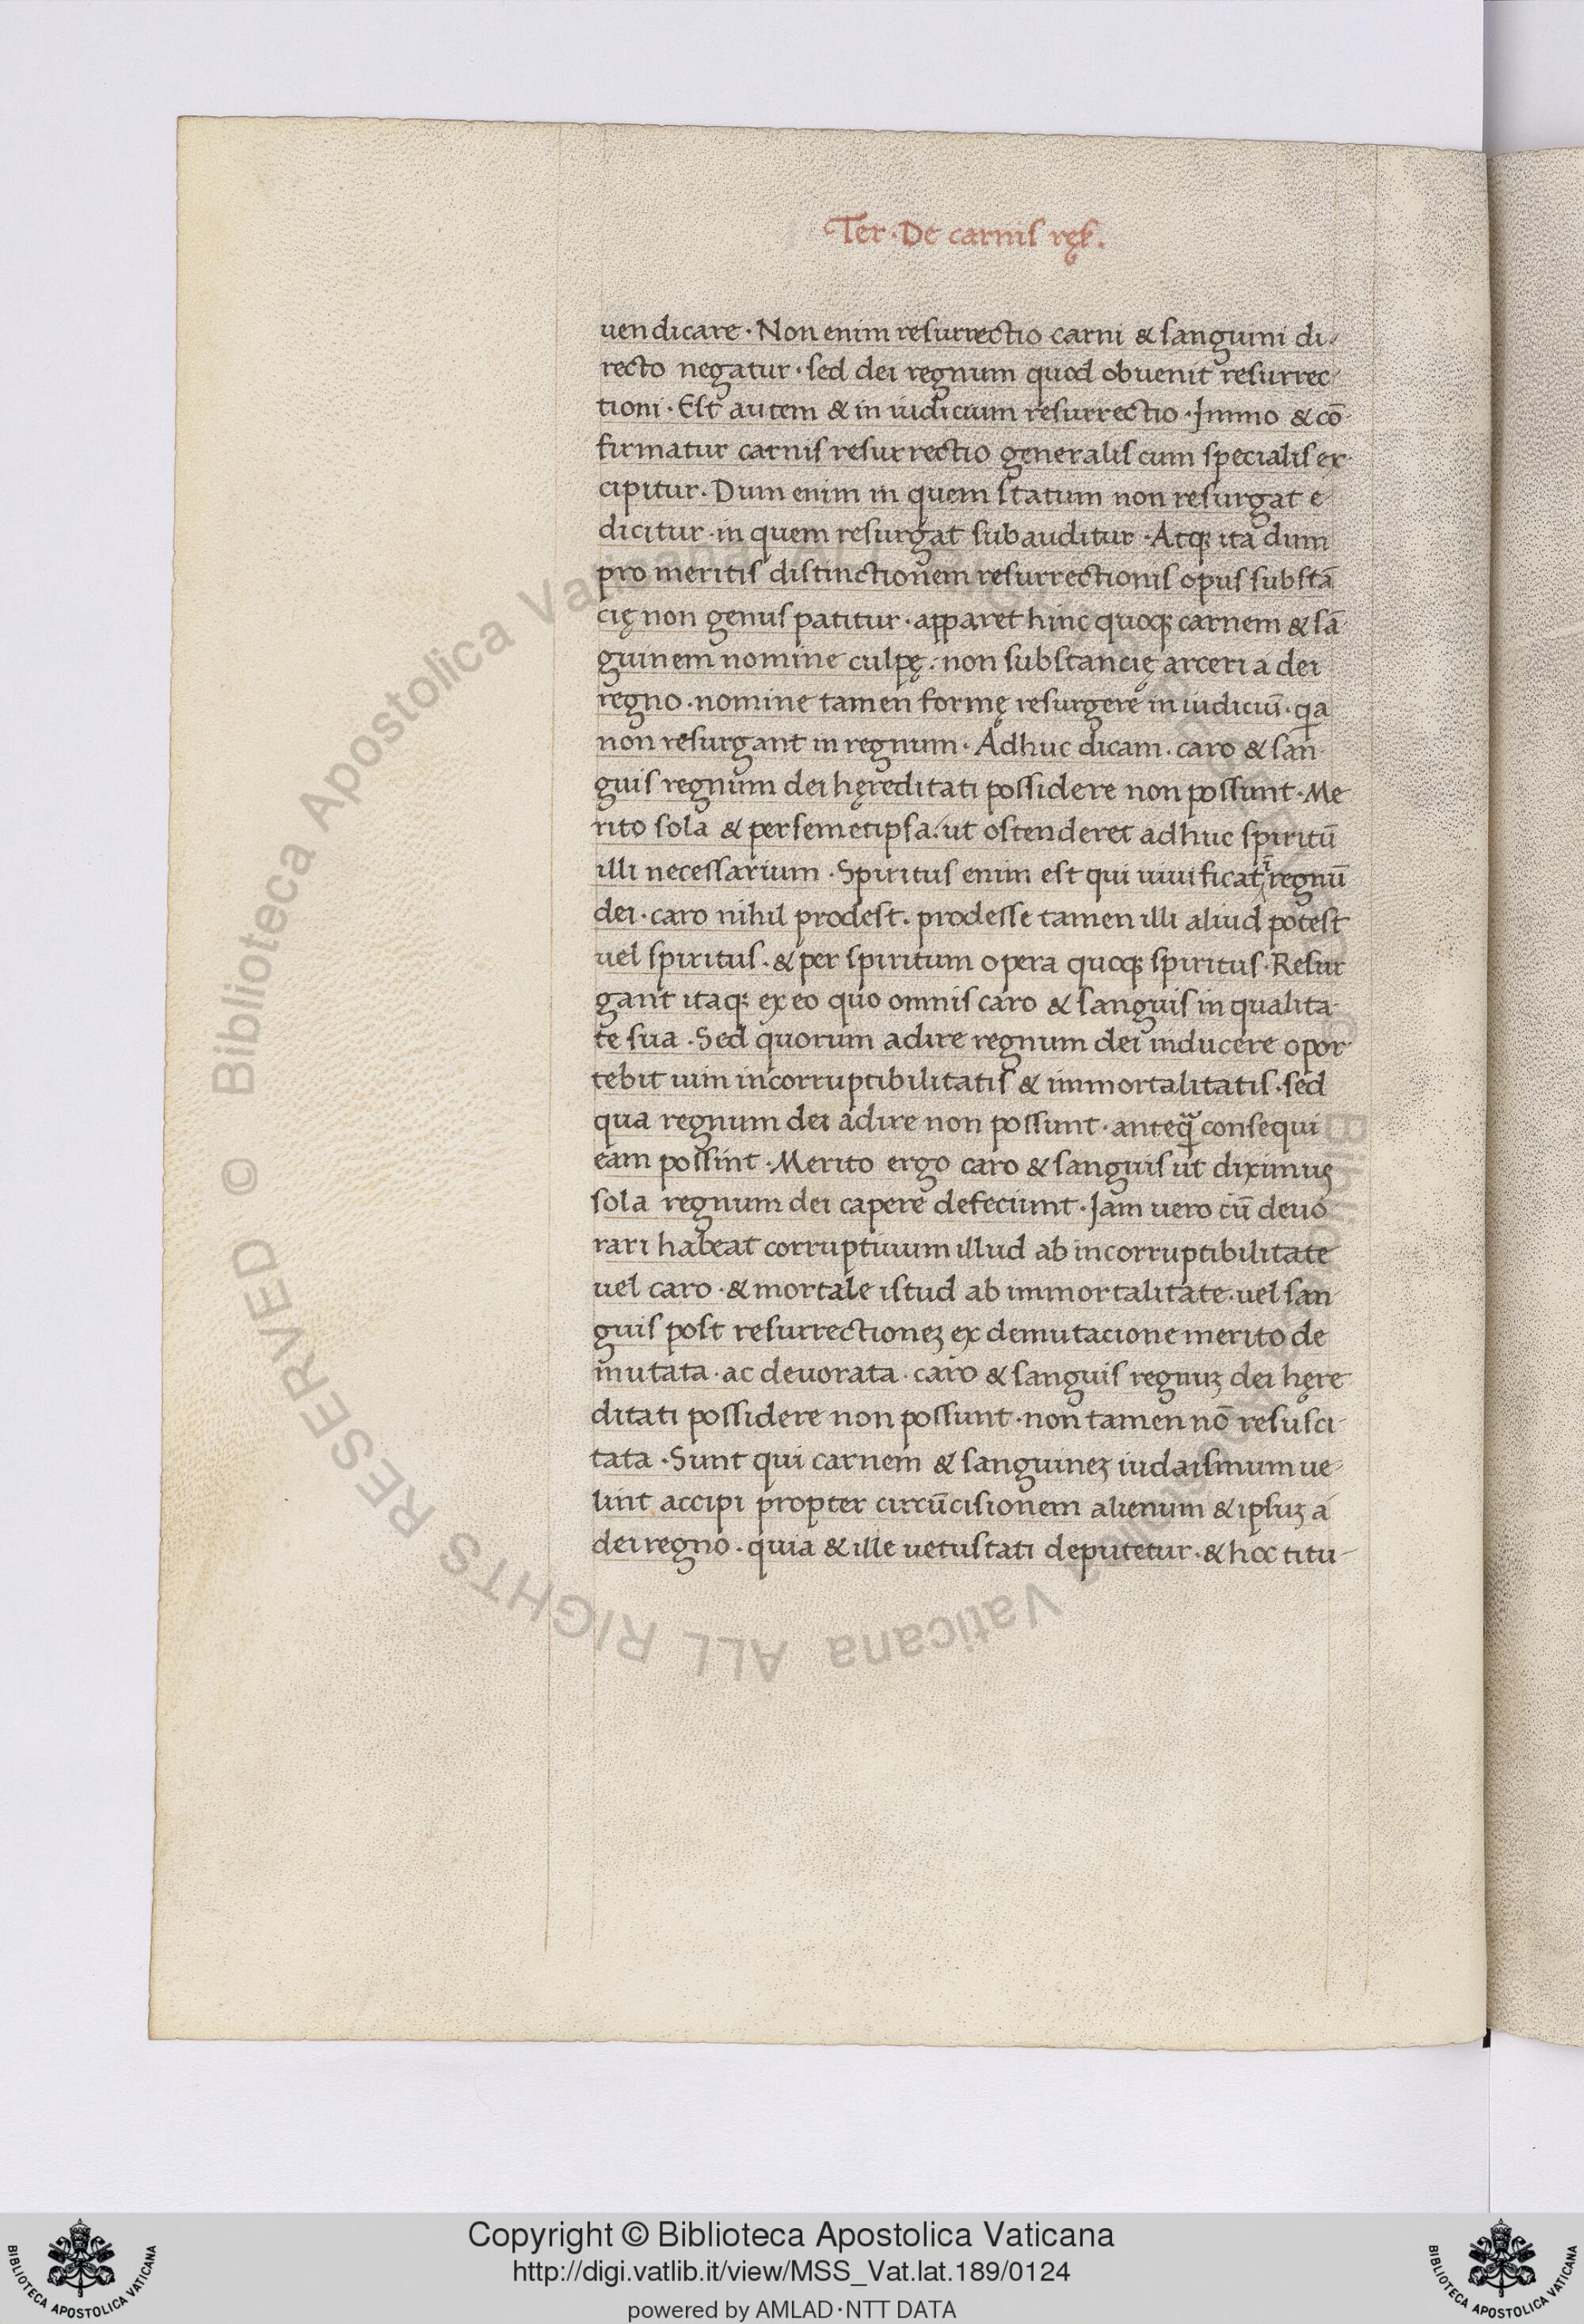 Ter · De carnis ręſ.
uendicare · Non enim resurrectio carni & sanguini di-
recto negatur · sed dei regnum quod obuenit resurrec-
tioni · Est autem & in iudicium resurrectio · Immo & cō-
firmatur carnis resurrectio generalis cum specialis ex-
cipitur · Dum enim in quem statum non resurgat e-
dicitur · in quem resurgat subauditur · Atq; ita dum
pro meritis distinctionem resurrectionis opus substā-
cię non genus patitur · apparet hinc quoq; carnem & sā-
guinem nomine culpę · non substancię arceri a dei
regno · nomine tamen formę resurgere in iudiciū · qia
non resurgant in regnum · Adhuc dicam · caro & san-
guis regnum dei hęreditati possidere non possunt · Me-
rito sola & per semetipsa · ut ostenderet adhuc spiritū
illi necessarium · Spiritus enim est qui uiuificat ī regnū
dei · caro nihil prodest · prodesse tamen illi aliud potest
uel spiritus · & per spiritum opera quoq; spiritus · Resur-
gant itaq; ex eo quo omnis caro & sanguis in qualita-
te sua · Sed quorum adire regnum dei inducere opor-
tebit uim incorruptibilitatis & immortalitatis · sed
qua regnum dei adire non possunt · anteq̄ consequi
eam possint · Merito ergo caro & sanguis ut diximus
sola regnum dei capere defeciunt · Jam uero cū deuo-
rari habeat corruptiuum illud ab incorruptibilitate
uel caro · & mortale istud ab immortalitate · uel san-
guis post resurrectioneʒ ex demutacione merito de-
mutata · ac deuorata · caro & sanguis regnuʒ dei hęre-
ditati possidere non possunt · non tamen nō resusci-
tata · Sunt qui carnem & sanguineʒ iudaismum ue-
lint accipi propter circūcisionem alienum & ipsuʒ a
dei regno · quia & ille uetustati deputetur · & hoc titu-
© Biblioteca Apostolica Vaticana ALL RIGHTS RESERVED
Copyright © Biblioteca Apostolica Vaticana
http://digi.vatlib.it/view/MSS_Vat.lat.189/0124
powered by AMLAD·NTT DATA
BIBLIOTECA APOSTOLICA VATICANA
BIBLIOTECA APOSTOLICA VATICANA